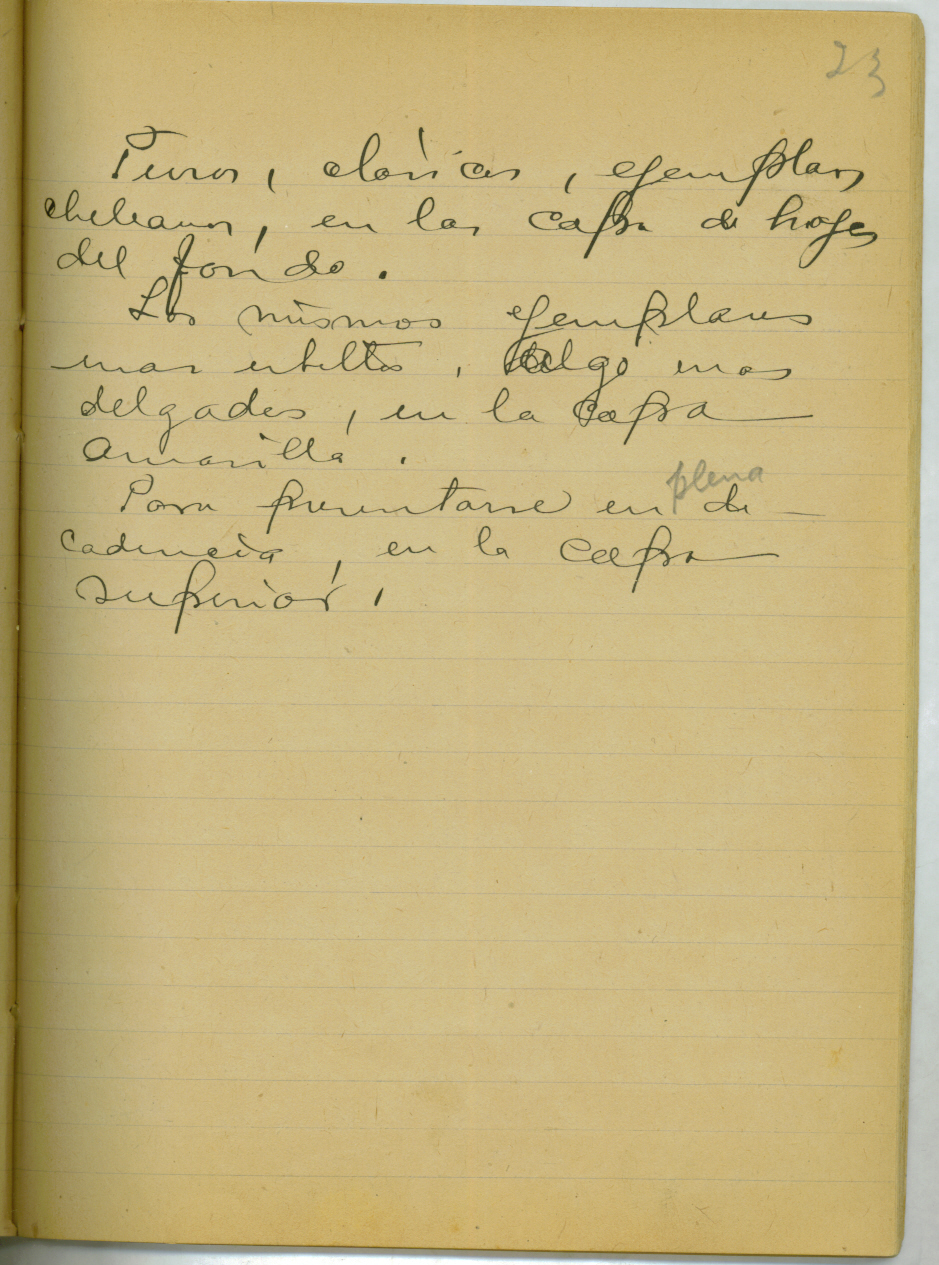 23
Puros, clásicos, ejemplares
chelleanos, en las capas de hogar
del fondo.
Los mismos ejemplares
mas esbeltos, algo mas
delgados, en la capa
amarilla.
Para presentarse en plena de-
cadencia, en la capa
superior.